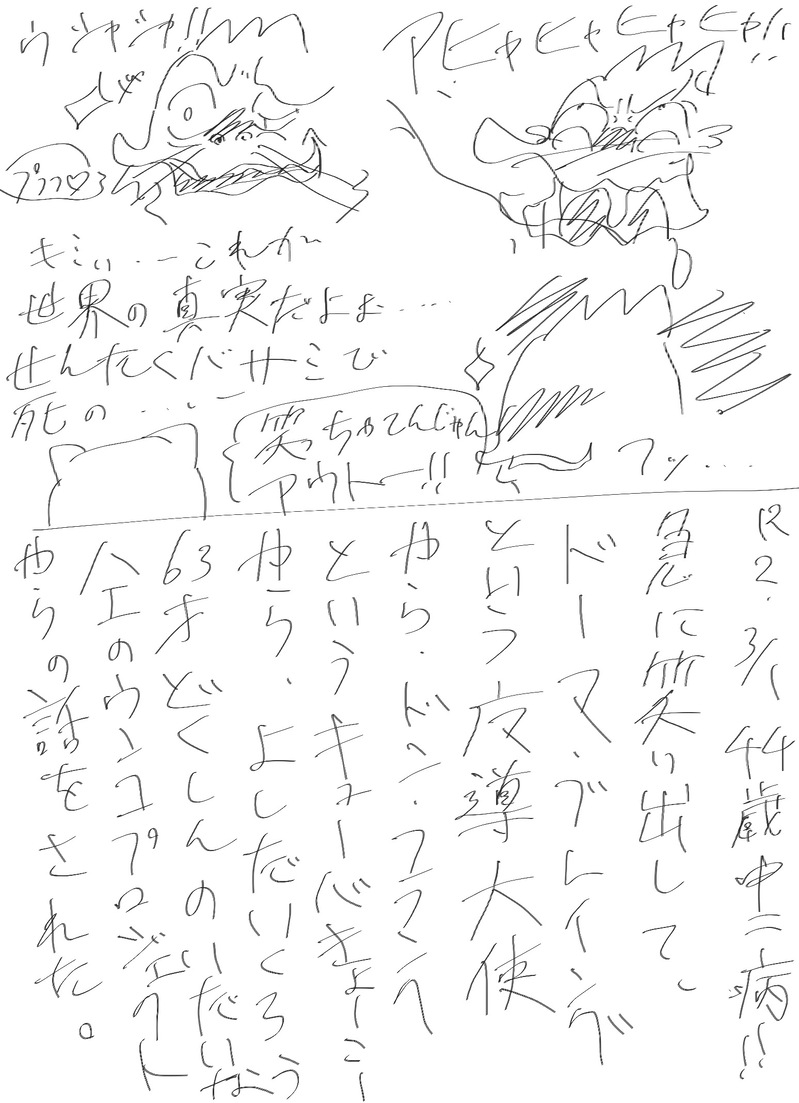 ウジャジャ!!
アヒャヒャヒャヒャ!!
プププ♡
キミぃ…これが
世界の真実だよぉ…
せんたくバサミで
死の…
笑っちゃてんじゃん
アウトー!!
フッ…
R2.3/1 44歳中二病!!
急に笑い出して、
ドーマ・ブレイング
という 導大使
やら・ドン・フフマンへ
というキューバきょーこー
やら、よしだいくろう
63才どくしんのいだいな
ハエのウンコプロジェクト
やらの話をされた。